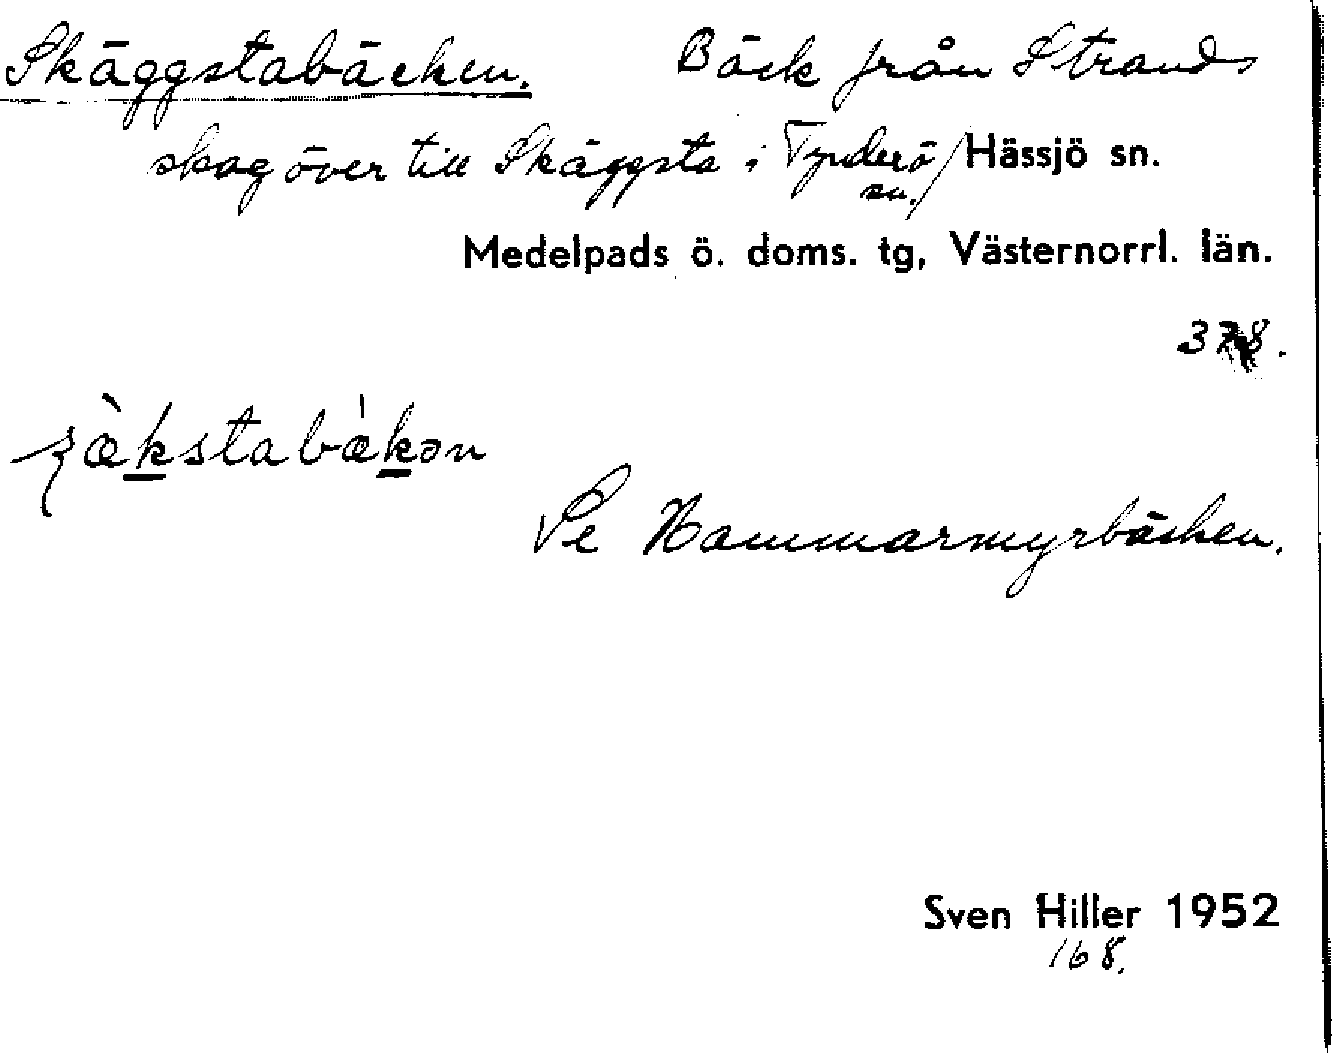 Skäggstabäcken. Bäck från Strands
skog över till Skäggsta i Tynderö sn./Hässjö sn.
Medelpads ö. doms. tg, Västernorrl. län.
378.
ʒæ̀kstabækən
Se Hammarmyrbäcken.
Sven Hiller 1952
168.